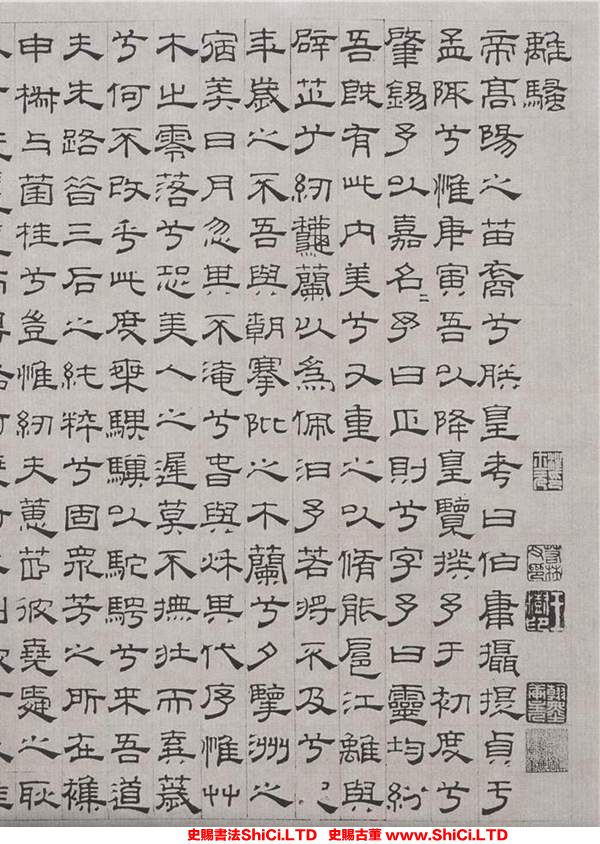 離騷
帝高陽之苗裔兮朕皇考曰伯庸攝提貞于
孟陬兮惟庚寅吾以降皇覽揆予于初度兮
肇錫予以嘉名二予曰正則兮字予曰靈均紛
吾既有此內美兮又重之以脩能扈江離與
辟芷兮紉蘭以為佩汩予若將不及兮恐
年歲之不吾與朝搴阰之木蘭兮夕擥洲之
宿莽日月忽其不淹兮春與秋其代序惟艸
木之零落兮恐美人之遲莫不撫壯而棄薉
兮何不改乎此度椉騏驥以馳騁兮來吾道
夫先路昔三后之純粹兮固眾芳之所在雜
申椒與菌桂兮豈惟紉夫蕙茝彼堯舜之耿
史賜書法ShiCi.LTD 史賜古董 www.ShiCi.LTD